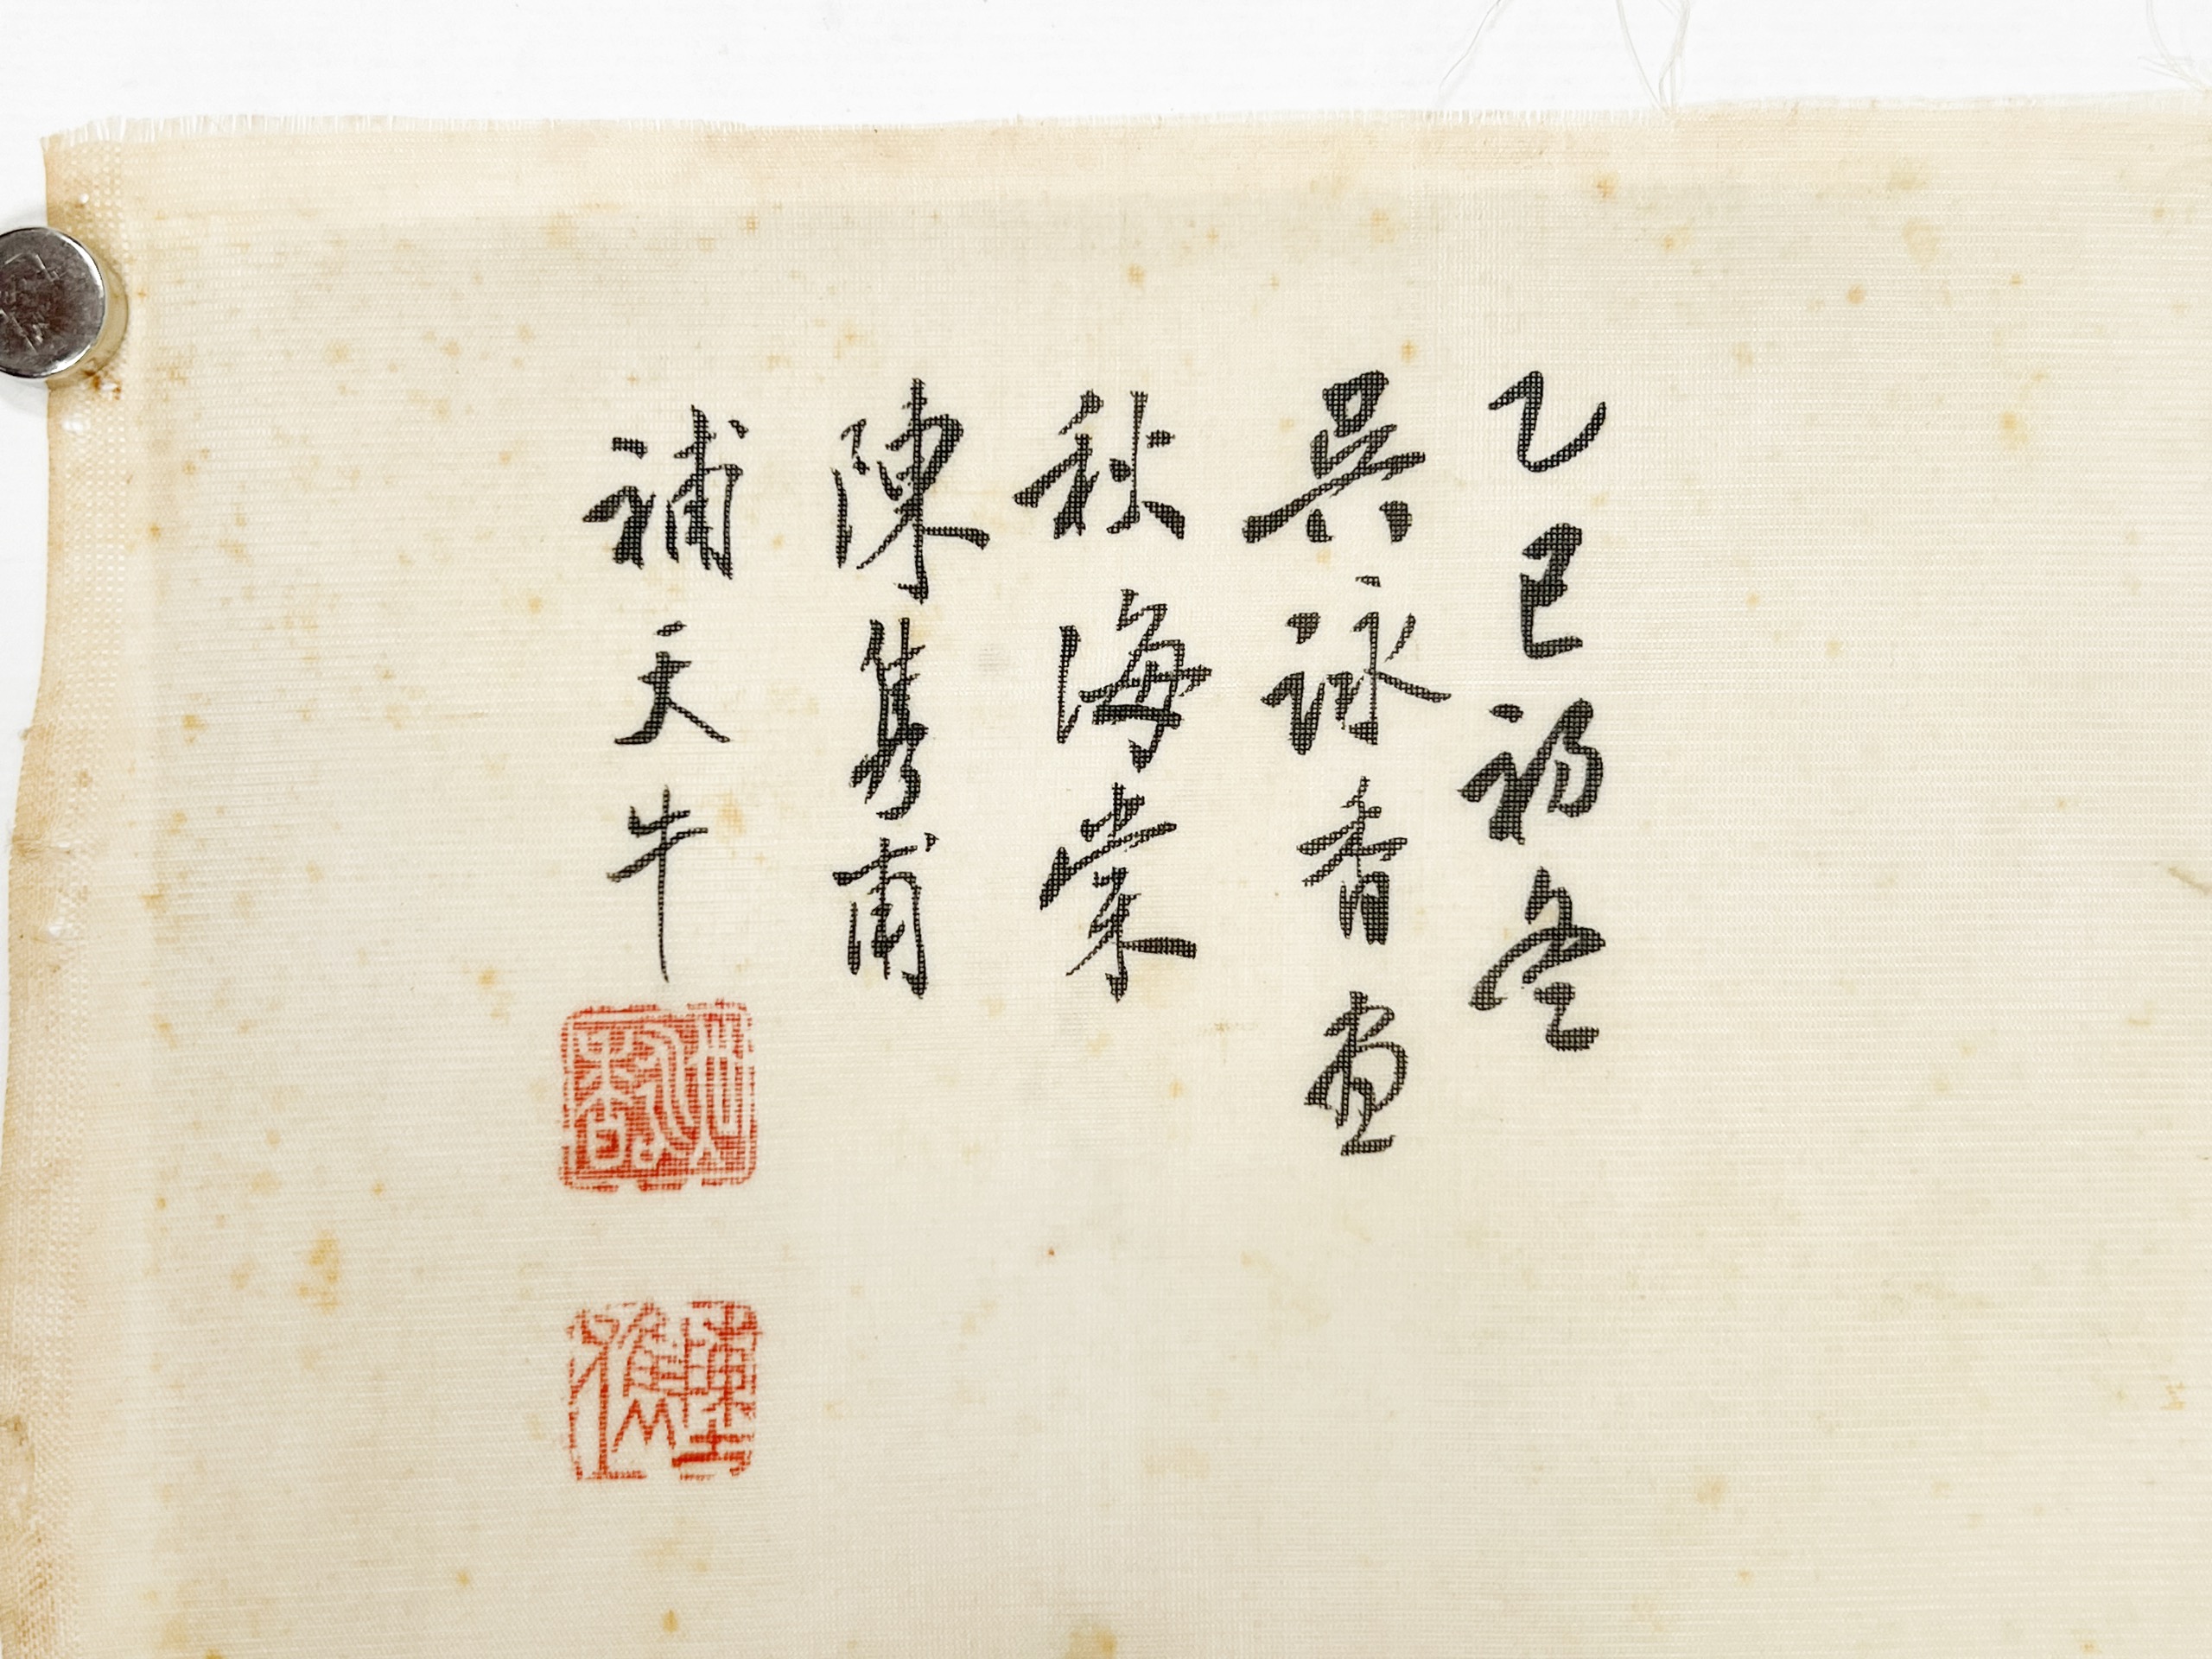 乙巳初冬
吳詠香畫
秋海棠
陳雋甫
補天牛